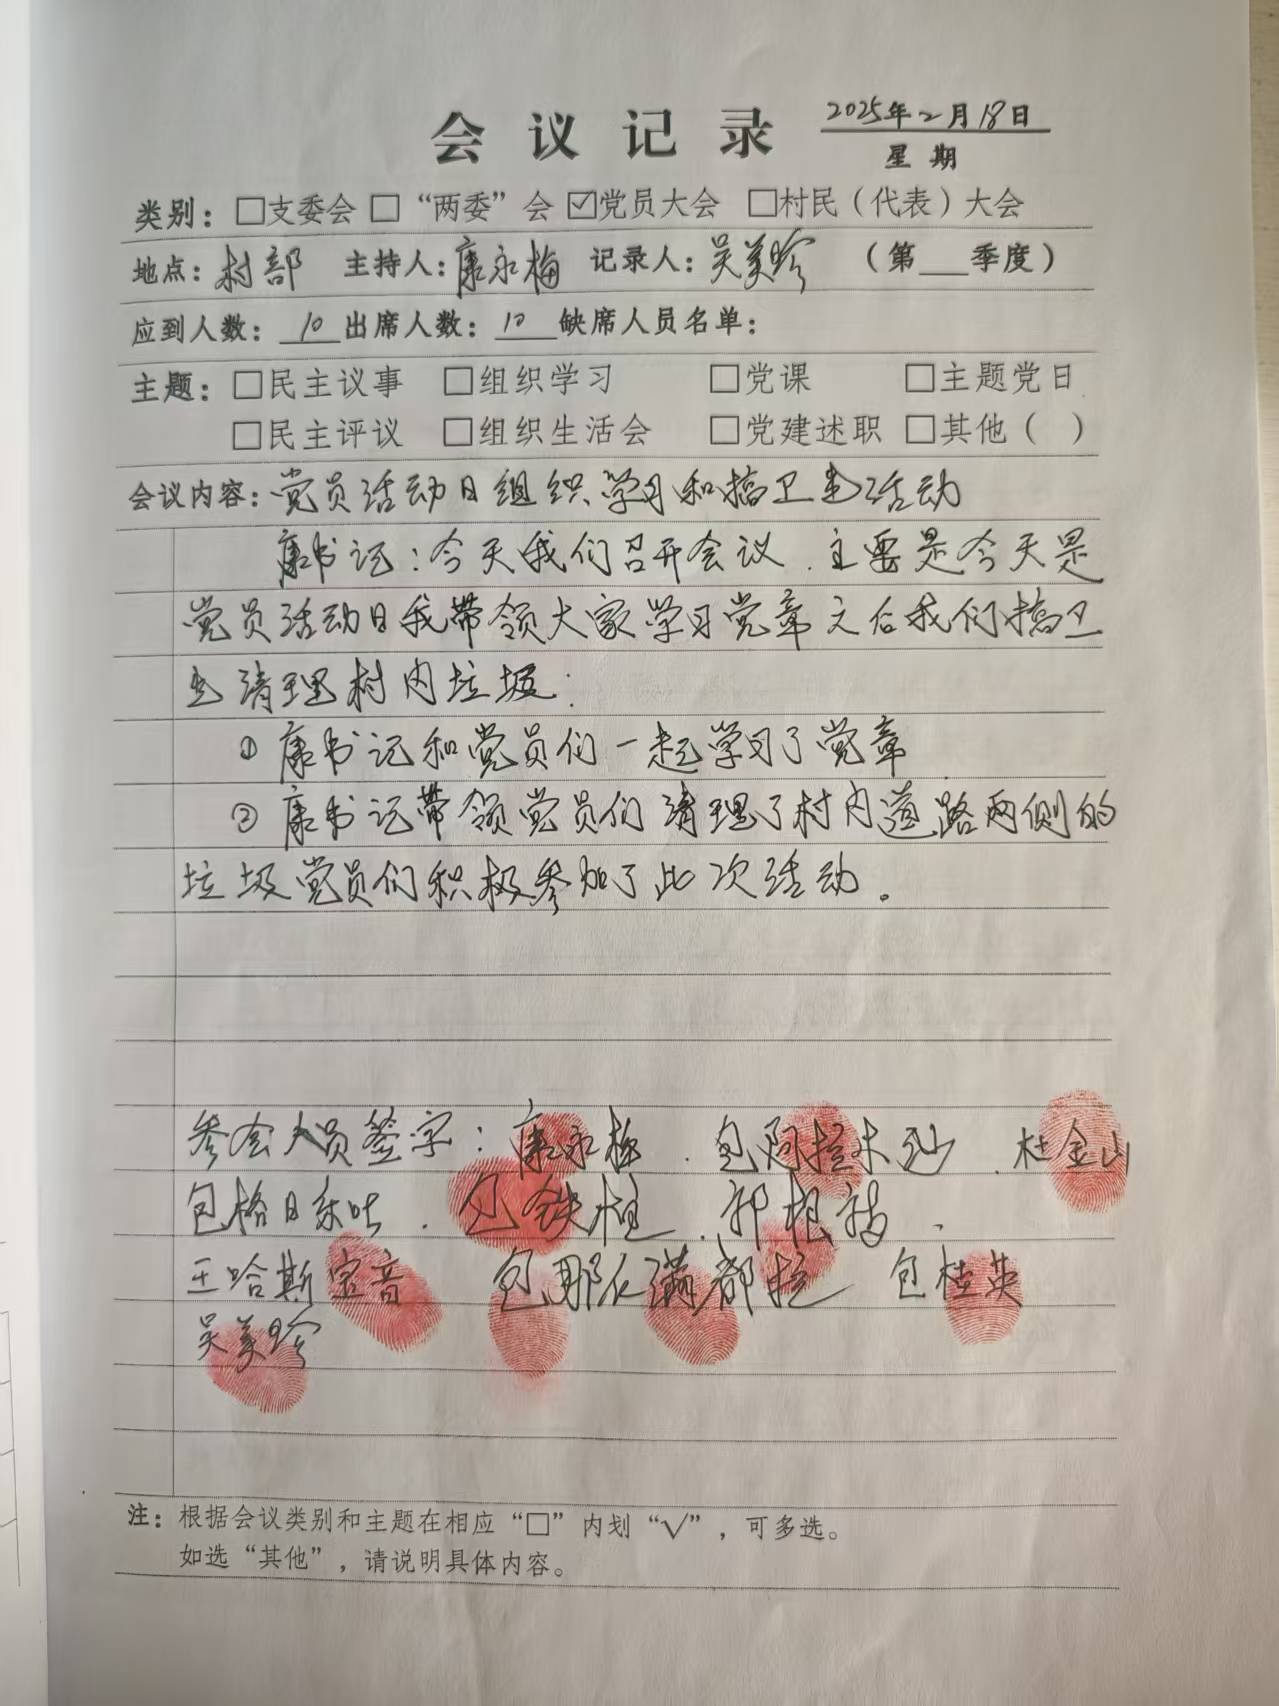 会议记录 2025年2月18日
星期
类别：□支委会 □“两委”会 ☑党员大会 □村民（代表）大会
地点：村部 主持人：康永梅 记录人：吴美珍 （第___季度）
应到人数：10 出席人数：10 缺席人员名单：
主题：□民主议事 □组织学习 □党课 □主题党日
□民主评议 □组织生活会 □党建述职 □其他（ ）
会议内容：党员活动日组织学习和搞卫生活动
康书记：今天我们召开会议．主要是今天是
党员活动日我带领大家学习党章文后我们搞卫
生清理村内垃圾：
①康书记和党员们一起学习了党章
②康书记带领党员们清理了村内道路两侧的
垃圾党员们积极参加了此次活动。
参会人员签字：康永梅．包阿拉木仙．杜金山
包格日乐吐．包铁柱．郭根福．
王哈斯宝音 包那仁满都拉 包桂英
吴美珍
注：根据会议类别和主题在相应“□”内划“√”，可多选。
如选“其他”，请说明具体内容。